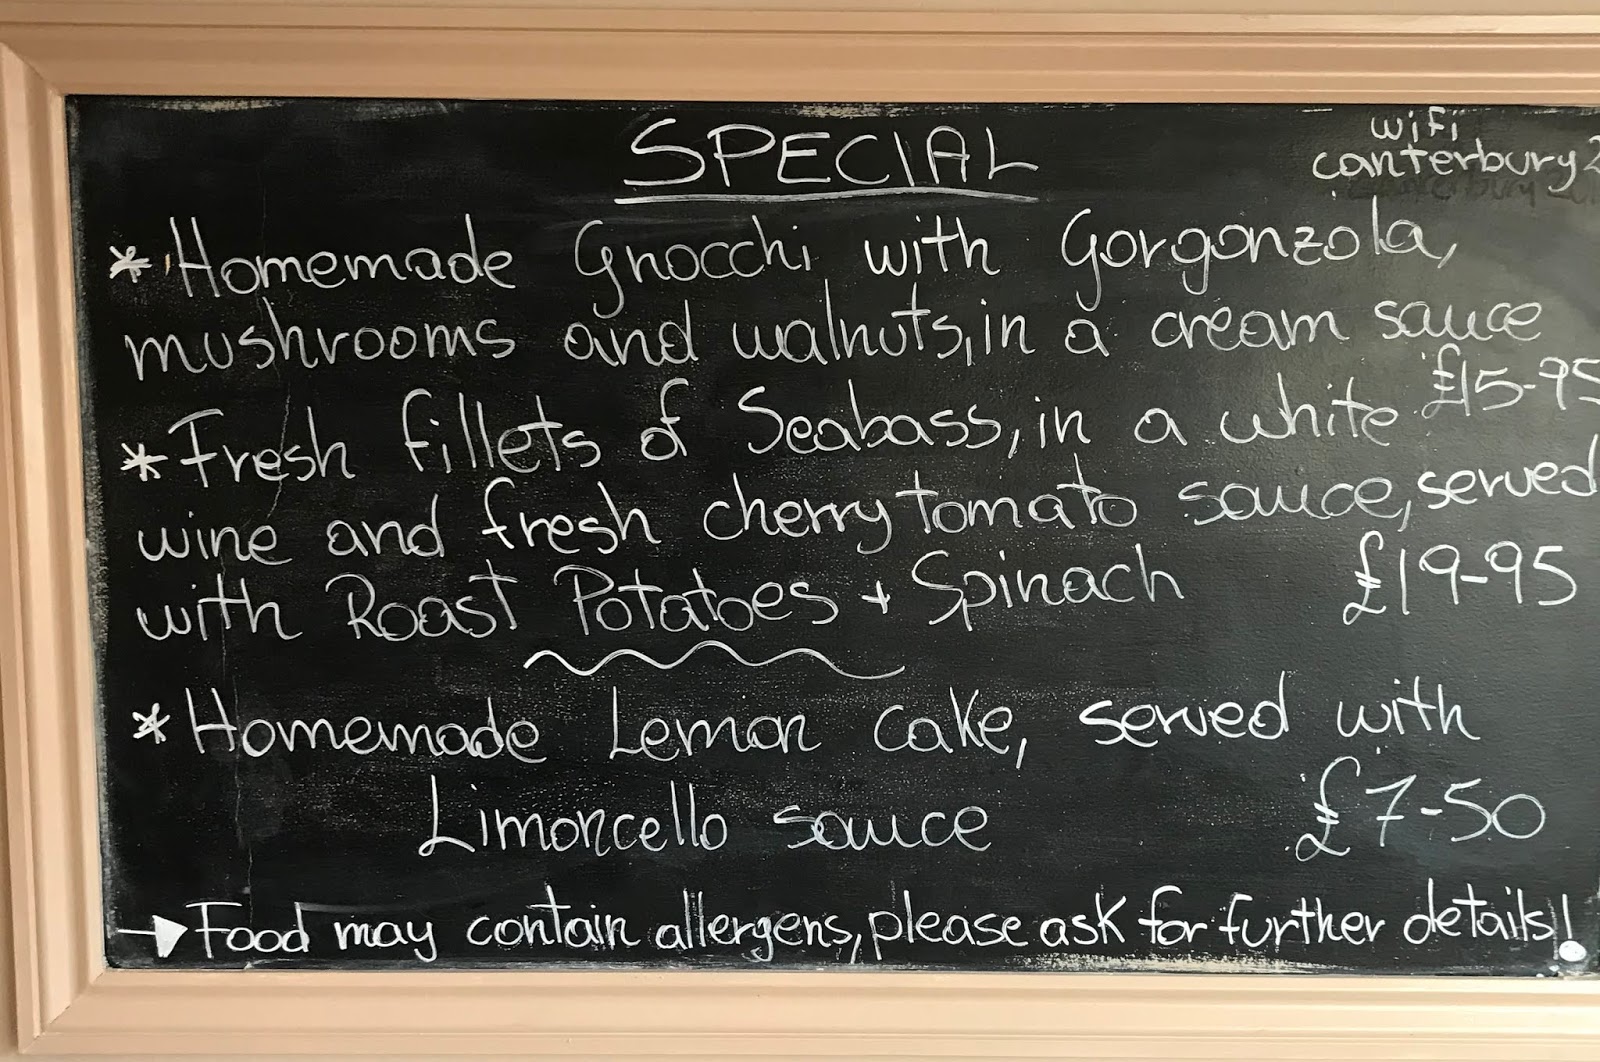 SPECIAL
wifi
canterbury2
* Homemade Gnocchi with Gorgonzola,
mushrooms and walnuts, in a cream sauce
£15-95
* Fresh fillets of Seabass, in a white
wine and fresh cherry tomato sauce, served
with Roast Potatoes + Spinach £19-95
* Homemade Lemon cake, served with
Limoncello sauce £7-50
→ Food may contain allergens, please ask for further details!